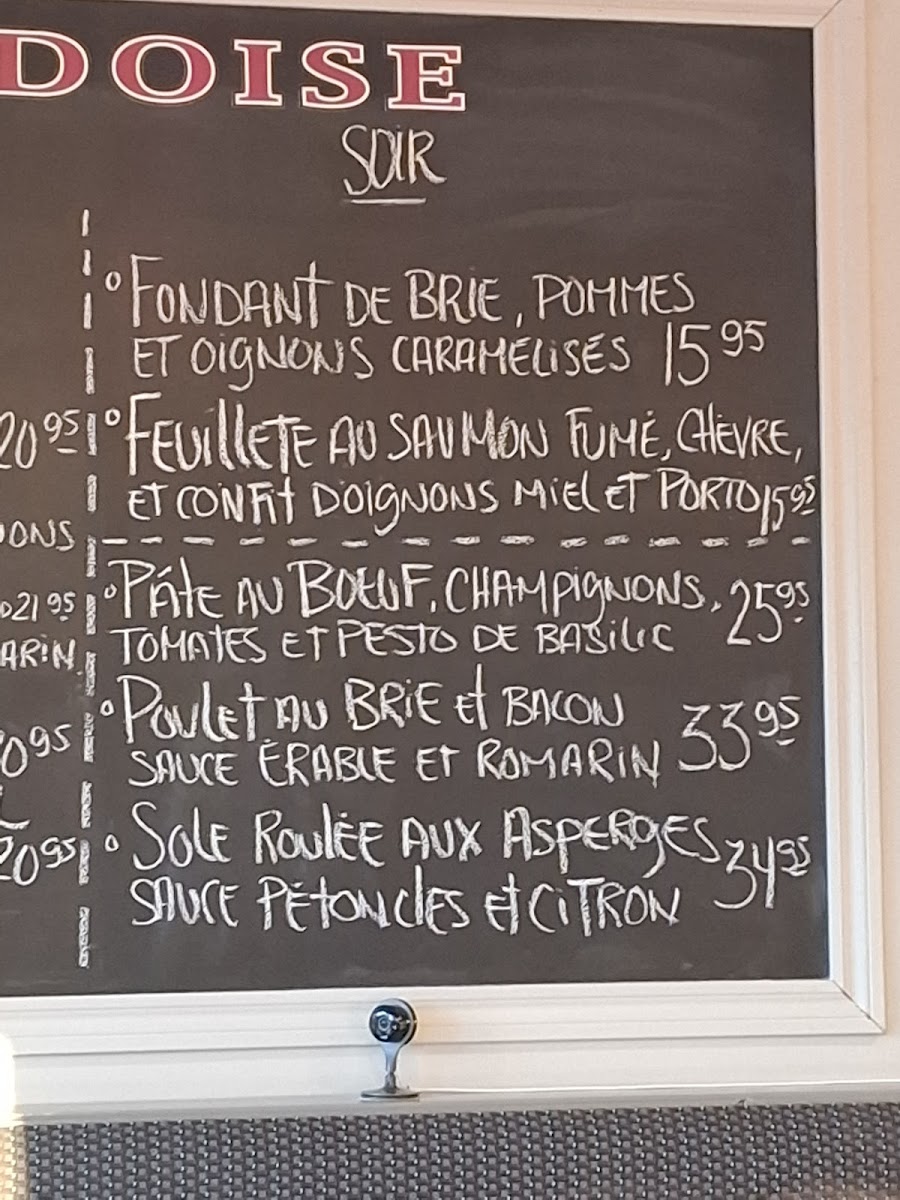 DOISE
SOIR
° FONDANT DE BRIE, POMMES
ET OIGNONS CARAMÉLISÉS 15 95
20 95
° FEUILLETÉ AU SAUMON FUMÉ, CHÈVRE,
ET CONFIT D'OIGNONS MIEL ET PORTO 15 95
ONS
° PÂTE AU BOEUF, CHAMPIGNONS, 25 95
21 95
TOMATES ET PESTO DE BASILIC
ARIN
° POULET AU BRIE ET BACON 33 95
0 95
SAUCE ÉRABLE ET ROMARIN
° SOLE ROULÉE AUX ASPERGES 34 95
20 95
SAUCE PÉTONCLES ET CITRON